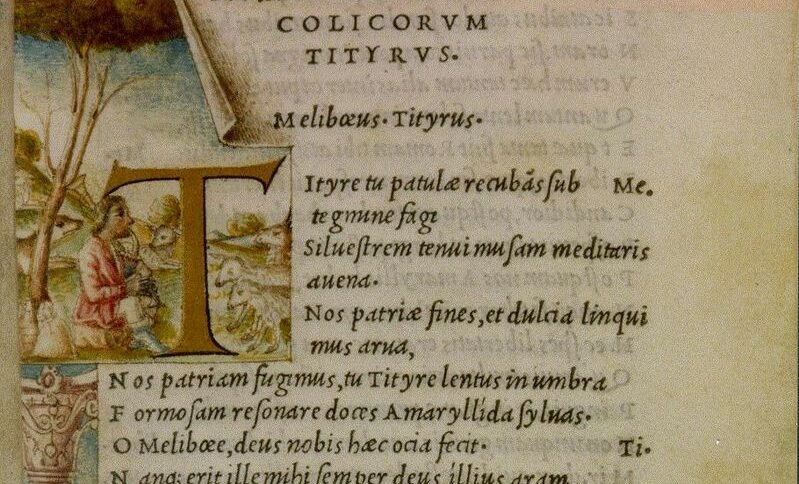 COLICORVM
TITYRVS.
Melibœus. Tityrus.
Tityre tu patulæ recubãs sub Me.
tegmine fagi
Siluestrem tenui musam meditaris
auena.
Nos patriæ fines, et dulcia linqui
mus arua,
Nos patriam fugimus, tu Tityre lentus in umbra
Formosam resonare doces Amaryllida syluas.
O Melibœe, deus nobis hæc ocia fecit. Ti.
Nanq; erit ille mihi semper deus, illius aram